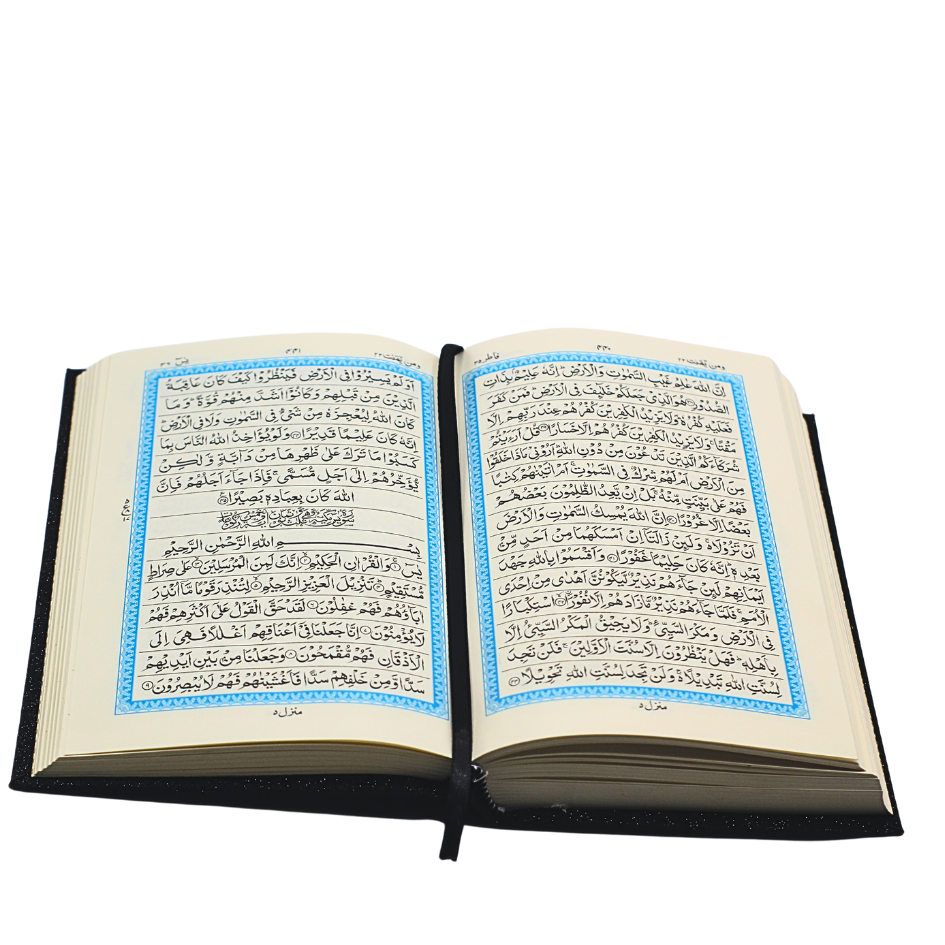 ومن یقنت ۲۲
۴۴۰
فاطر ۳۵
اِنَّ اللّٰهَ عٰلِمُ غَیْبِ السَّمٰوٰتِ وَالْاَرْضِ ؕ اِنَّهٗ عَلِیْمٌۢ بِذَاتِ
الصُّدُوْرِ ﴿۳۸﴾ هُوَ الَّذِیْ جَعَلَكُمْ خَلٰٓئِفَ فِی الْاَرْضِ ؕ فَمَنْ كَفَرَ
فَعَلَیْهِ كُفْرُهٗ ؕ وَلَا یَزِیْدُ الْكٰفِرِیْنَ كُفْرُهُمْ عِنْدَ رَبِّهِمْ اِلَّا
مَقْتًا ۚ وَلَا یَزِیْدُ الْكٰفِرِیْنَ كُفْرُهُمْ اِلَّا خَسَارًا ﴿۳۹﴾ قُلْ اَرَءَیْتُمْ
شُرَكَآءَكُمُ الَّذِیْنَ تَدْعُوْنَ مِنْ دُوْنِ اللّٰهِ ؕ اَرُوْنِیْ مَاذَا خَلَقُوْا
مِنَ الْاَرْضِ اَمْ لَهُمْ شِرْكٌ فِی السَّمٰوٰتِ ۚ اَمْ اٰتَیْنٰهُمْ كِتٰبًا
فَهُمْ عَلٰی بَیِّنَتٍ مِّنْهُ ۚ بَلْ اِنْ یَّعِدُ الظّٰلِمُوْنَ بَعْضُهُمْ
بَعْضًا اِلَّا غُرُوْرًا ﴿۴۰﴾ اِنَّ اللّٰهَ یُمْسِكُ السَّمٰوٰتِ وَالْاَرْضَ
اَنْ تَزُوْلَا ۚ۬ وَلَىِٕنْ زَالَتَاۤ اِنْ اَمْسَكَهُمَا مِنْ اَحَدٍ مِّنْۢ
بَعْدِهٖ ؕ اِنَّهٗ كَانَ حَلِیْمًا غَفُوْرًا ﴿۴۱﴾ وَاَقْسَمُوْا بِاللّٰهِ جَهْدَ
اَیْمَانِهِمْ لَىِٕنْ جَآءَهُمْ نَذِیْرٌ لَّیَكُوْنُنَّ اَهْدٰی مِنْ اِحْدَی
الْاُمَمِ ۚ فَلَمَّا جَآءَهُمْ نَذِیْرٌ مَّا زَادَهُمْ اِلَّا نُفُوْرًا ﴿۴۲﴾ اسْتِكْبَارًا
فِی الْاَرْضِ وَمَكْرَ السَّیِّئِ ؕ وَلَا یَحِیْقُ الْمَكْرُ السَّیِّئُ اِلَّا
بِاَهْلِهٖ ؕ فَهَلْ یَنْظُرُوْنَ اِلَّا سُنَّتَ الْاَوَّلِیْنَ ۚ فَلَنْ تَجِدَ
لِسُنَّتِ اللّٰهِ تَبْدِیْلًا ۚ۬ وَلَنْ تَجِدَ لِسُنَّتِ اللّٰهِ تَحْوِیْلًا ﴿۴۳﴾
منزل ۵
ومن یقنت ۲۲
۴۴۱
یٰسٓ ۳۶
اَوَلَمْ یَسِیْرُوْا فِی الْاَرْضِ فَیَنْظُرُوْا كَیْفَ كَانَ عَاقِبَةُ
الَّذِیْنَ مِنْ قَبْلِهِمْ وَكَانُوْۤا اَشَدَّ مِنْهُمْ قُوَّةً ؕ وَمَا
كَانَ اللّٰهُ لِیُعْجِزَهٗ مِنْ شَیْءٍ فِی السَّمٰوٰتِ وَلَا فِی الْاَرْضِ ؕ
اِنَّهٗ كَانَ عَلِیْمًا قَدِیْرًا ﴿۴۴﴾ وَلَوْ یُؤَاخِذُ اللّٰهُ النَّاسَ بِمَا
كَسَبُوْا مَا تَرَكَ عَلٰی ظَهْرِهَا مِنْ دَآبَّةٍ وَّلٰكِنْ
یُّؤَخِّرُهُمْ اِلٰۤی اَجَلٍ مُّسَمًّی ۚ فَاِذَا جَآءَ اَجَلُهُمْ فَاِنَّ
اللّٰهَ كَانَ بِعِبَادِهٖ بَصِیْرًا ﴿۴۵﴾
بِسْمِ اللّٰهِ الرَّحْمٰنِ الرَّحِیْمِ
یٰسٓ ﴿۱﴾ وَالْقُرْاٰنِ الْحَكِیْمِ ﴿۲﴾ اِنَّكَ لَمِنَ الْمُرْسَلِیْنَ ﴿۳﴾ عَلٰی صِرَاطٍ
مُّسْتَقِیْمٍ ﴿۴﴾ تَنْزِیْلَ الْعَزِیْزِ الرَّحِیْمِ ﴿۵﴾ لِتُنْذِرَ قَوْمًا مَّاۤ اُنْذِرَ
اٰبَآؤُهُمْ فَهُمْ غٰفِلُوْنَ ﴿۶﴾ لَقَدْ حَقَّ الْقَوْلُ عَلٰۤی اَكْثَرِهِمْ فَهُمْ
لَا یُؤْمِنُوْنَ ﴿۷﴾ اِنَّا جَعَلْنَا فِیْۤ اَعْنَاقِهِمْ اَغْلٰلًا فَهِیَ اِلَی
الْاَذْقَانِ فَهُمْ مُّقْمَحُوْنَ ﴿۸﴾ وَجَعَلْنَا مِنْۢ بَیْنِ اَیْدِیْهِمْ
سَدًّا وَّمِنْ خَلْفِهِمْ سَدًّا فَاَغْشَیْنٰهُمْ فَهُمْ لَا یُبْصِرُوْنَ ﴿۹﴾
منزل ۵